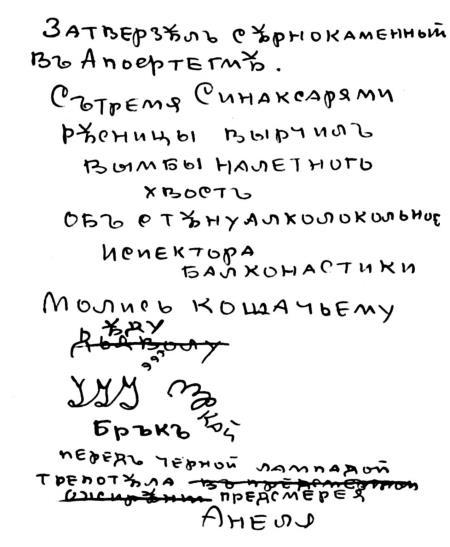 Затверзѣлъ сѣрнокаменный
въ Апоертегмѣ.
Съ тремя Синаксарями
рѣсницы вырчилъ
вымбы налетного
хвостъ
объ стѣнуалколокольное
испектора
балконастики
Молись кошачьему
ѣду
Дьяволу
УУУ
Зокой
Бръкъ
передъ черной лампадой
трепотѣла въ предсмертном
ожирѣнии предсмерея
Анеля